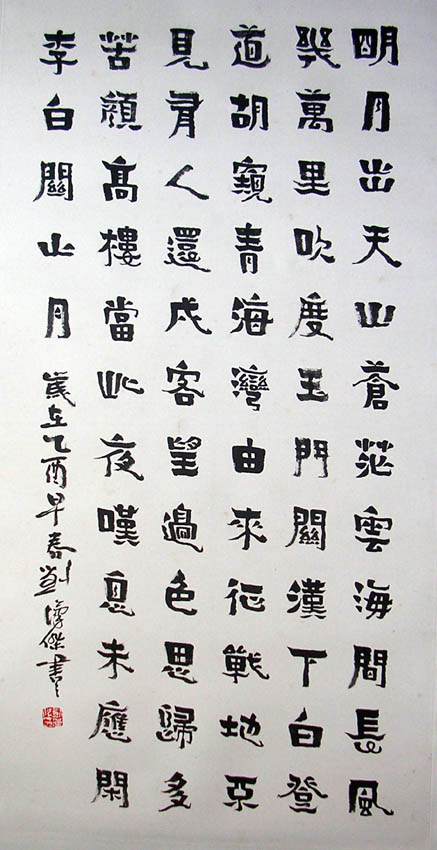 明月出天山蒼茫雲海間長風
幾萬里吹度玉門關漢下白登
道胡窺青海灣由來征戰地不
見有人還戍客望邊色思歸多
苦顏高樓當此夜嘆息未應閑
李白關山月 歲在乙酉早春劉傑書